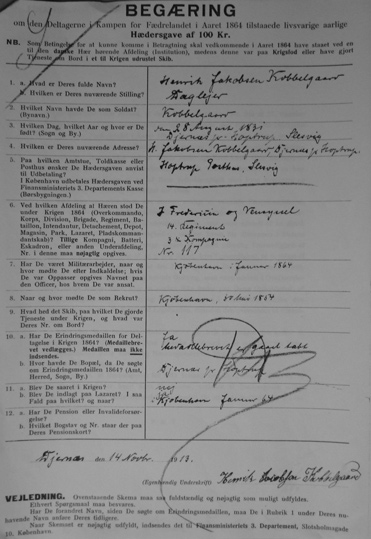 BEGÆRING
om den Deltagerne i Kampen for Fædrelandet i Aaret 1864 tilstaaede livsvarige aarlige
Hædersgave af 100 Kr.
NB. Som Betingelse for at kunne komme i Betragtning skal vedkommende i Aaret 1864 have staaet ved en
til den danske Hær hørende Afdeling (Institution), medens denne var paa Krigsfod eller have gjort
Tjeneste om Bord i et til Krigen udrustet Skib.
1. a. Hvad er Deres fulde Navn? Henrik Jakobsen Kobbelgaard
b. Hvilken er Deres nuværende Stilling? Daglejer
2. Hvilket Navn havde De som Soldat? Kobbelgaard
(Bynavn.)
3. Hvilken Dag, hvilket Aar og hvor er De
født? (Sogn og By.) Djernæs pr. Hoptrup, Slesvig
4. Hvilken er Deres nuværende Adresse? H. Jakobsen Kobbelgaard, Djernæs pr. Hoptrup
5. Paa hvilken Amtstue, Toldkasse eller
Posthus ønsker De Hædersgaven anvist
til Udbetaling? Hoptrup Posthus, Slesvig
I København udbetales Hædersgaven ved
Finansministeriets 3. Departements Kasse
(Børsbygningen.)
6. Ved hvilken Afdeling af Hæren stod De
under Krigen 1864 (Overkommando,
Korps, Division, Brigade, Regiment, Ba-
taillon, Intendantur, Detachement, Depot,
Magasin, Park, Lazaret, Pladskomman-
dantskab)? Tillige Kompagni, Batteri,
Eskadron, eller anden Underafdeling,
Nr. i denne maa nøjagtig opgives.
I Fredericia og Vensyssel
14. Regiment
3 Kompagni
No. 117
7. Har De været Militærarbejder, naar og
hvor mødte De efter Indkaldelse; hvis
De var Oppasser opgives Navnet paa
den Officer, hos hvem De var ansat.
Kjøbenhavn Januar 1864
8. Naar og hvor mødte De som Rekrut? Kjøbenhavn, 1864
9. Hvad hed det Skib, paa hvilket De gjorde
Tjeneste under Krigen, og hvad var
Deres Nr. om Bord?
10. a. Har De Erindringsmedaillen for Del-
tagelse i Krigen 1864? (Medaillebre-
vet vedlægges.) Medaillen maa ikke
indsendes.
Ja
b. Hvor havde De Bopæl, da De søgte
om Erindringsmedaillen 1864? (Amt,
Herred, Sogn, By.)
Djernæs pr. Hoptrup
11. a. Blev De saaret i Krigen? nej
b. Blev De indlagt paa Lazaret? I saa
Fald paa hvilket? og naar? Kjøbenhavn Januar 64
12. a. Har De Pension eller Invalideforsør-
gelse?
b. Hvilket Bogstav og Nr. staar der paa
Deres Pensionskort?
Djernæs den 14 Novbr. 1913.
(Egenhændig Underskrift)
VEJLEDNING. Ovenstaaende Skema maa saa fuldstændig og nøjagtig som muligt udfyldes.
Ethvert Spørgsmaal maa besvares.
Har De forandret Navn, siden De søgte om Erindringsmedaillen, maa De i Rubrik 1 under Deres nu-
havende Navn anføre Deres tidligere.
Naar Skemaet er nøjagtig udfyldt, indsendes det til Finansministeriets 3. Departement, Slotsholmsgade
10. København.